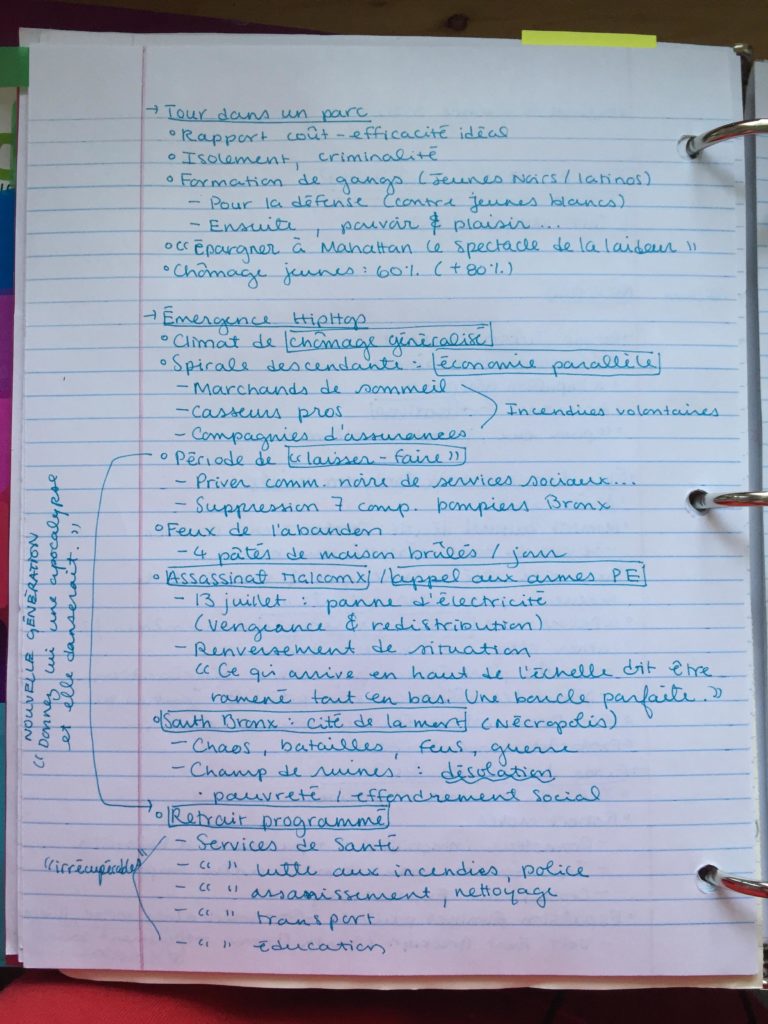 → Tour dans un parc
° Rapport coût-efficacité idéal
° Isolement, criminalité
° Formation de gangs (jeunes Noirs/latinos)
– Pour la défense (contre jeunes blancs)
– Ensuite, pouvoir & plaisir...
° « Épargner à Mahattan le spectacle de la laideur »
° Chômage jeunes : 60% (+80%)
→ Émergence HipHop
° Climat de chômage généralisé
° Spirale descendante : économie parallèle
– Marchands de sommeil
– Casseurs pros
Incendies volontaires
– Compagnies d'assurances
° Période de « laisser-faire »
– Priver comm. noire de services sociaux...
– Suppression 7 comp. pompiers Bronx
° Feux de l'abandon
– 4 pâtés de maison brûlés / jour
° Assassinat MalcomX / l'appel aux armes PE
– 13 juillet : panne d'électricité
(vengeance & redistribution)
– Renversement de situation
« Ce qui arrive en haut de l'échelle doit être
ramené tout en bas. Une boucle parfaite. »
° South Bronx : cité de la mort (Nécropolis)
– Chaos, batailles, feus, guerre
– Champ de ruines : désolation
· pauvreté / effondrement social
° Retrait programmé
– Services de Santé
– « » lutte aux incendies, police
– « » assainissement, nettoyage
– « » transport
– « » éducation
"irrécupérables"
NOUVELLE GÉNÉRATION
« Donnez lui une apocalypse
et elle danserait. »